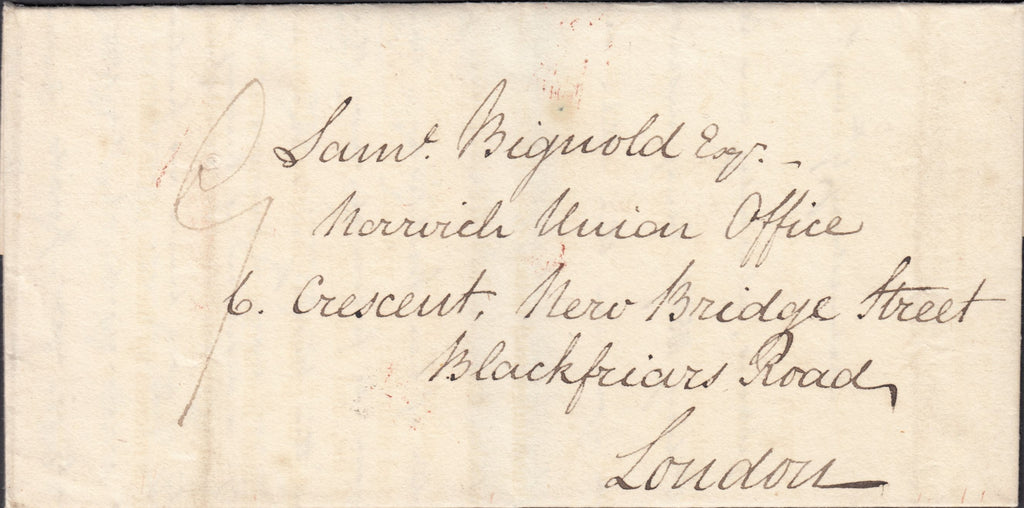 Saml. Bignold Esqr. -
Norwich Union Office
6. Crescent, New Bridge Street
Blackfriars Road,
London